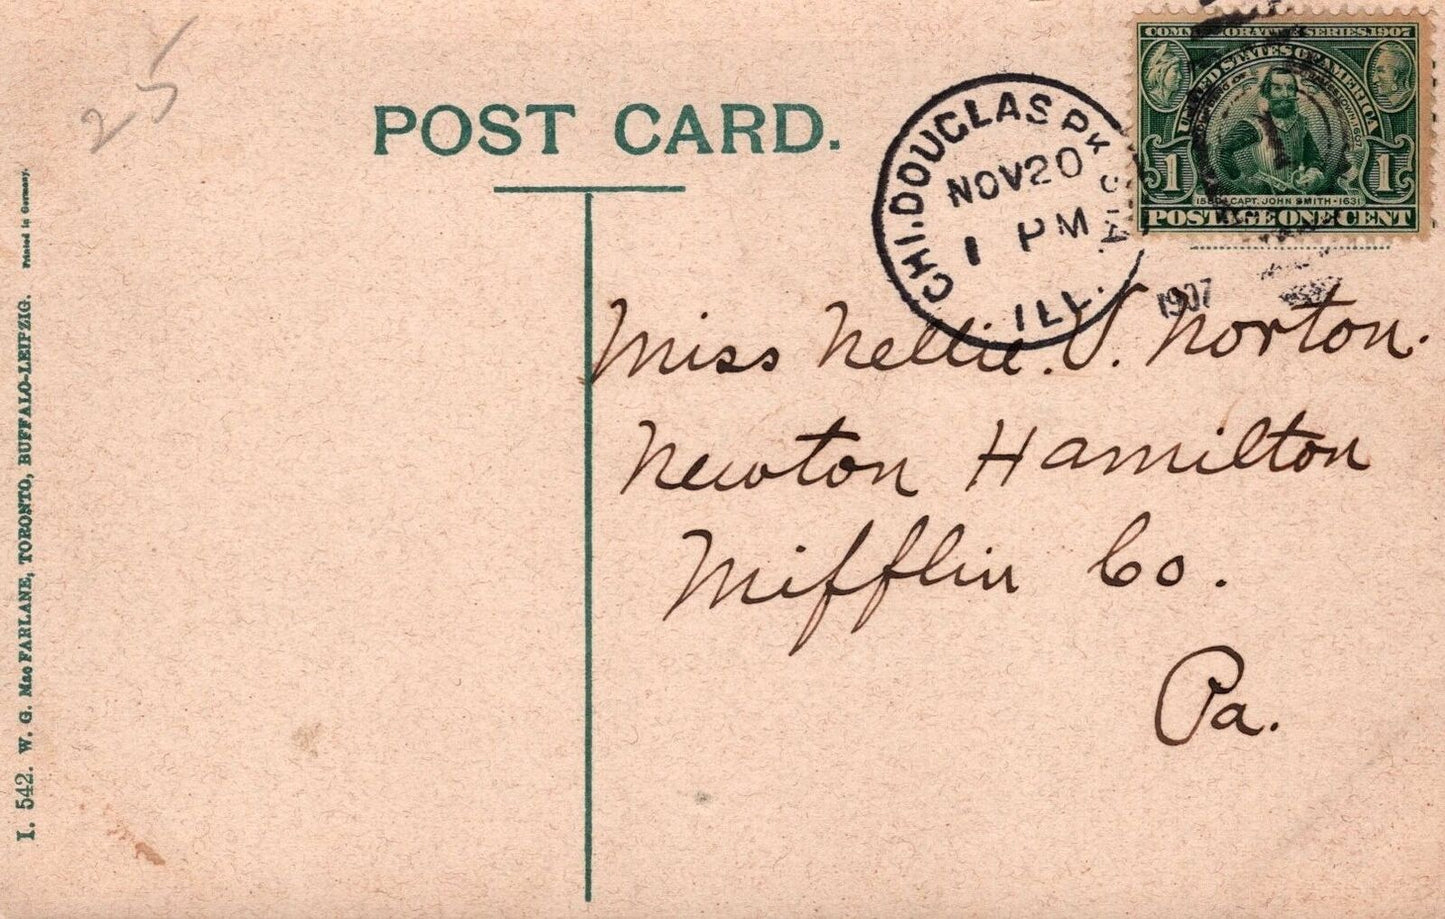 25
POST CARD.
COMMEMORATIVE SERIES 1907
UNITED STATES OF AMERICA
1 1
1580 • CAPT. JOHN SMITH • 1631
POSTAGE ONE CENT
CHI. DOUGLAS PK STA
NOV 20
1 PM
ILL.
1907
Miss Nellie. V. Norton.
Newton Hamilton
Mifflin Co.
Pa.
I. 542. W. G. Mac FARLANE, TORONTO, BUFFALO-LEIPZIG. Printed in Germany.